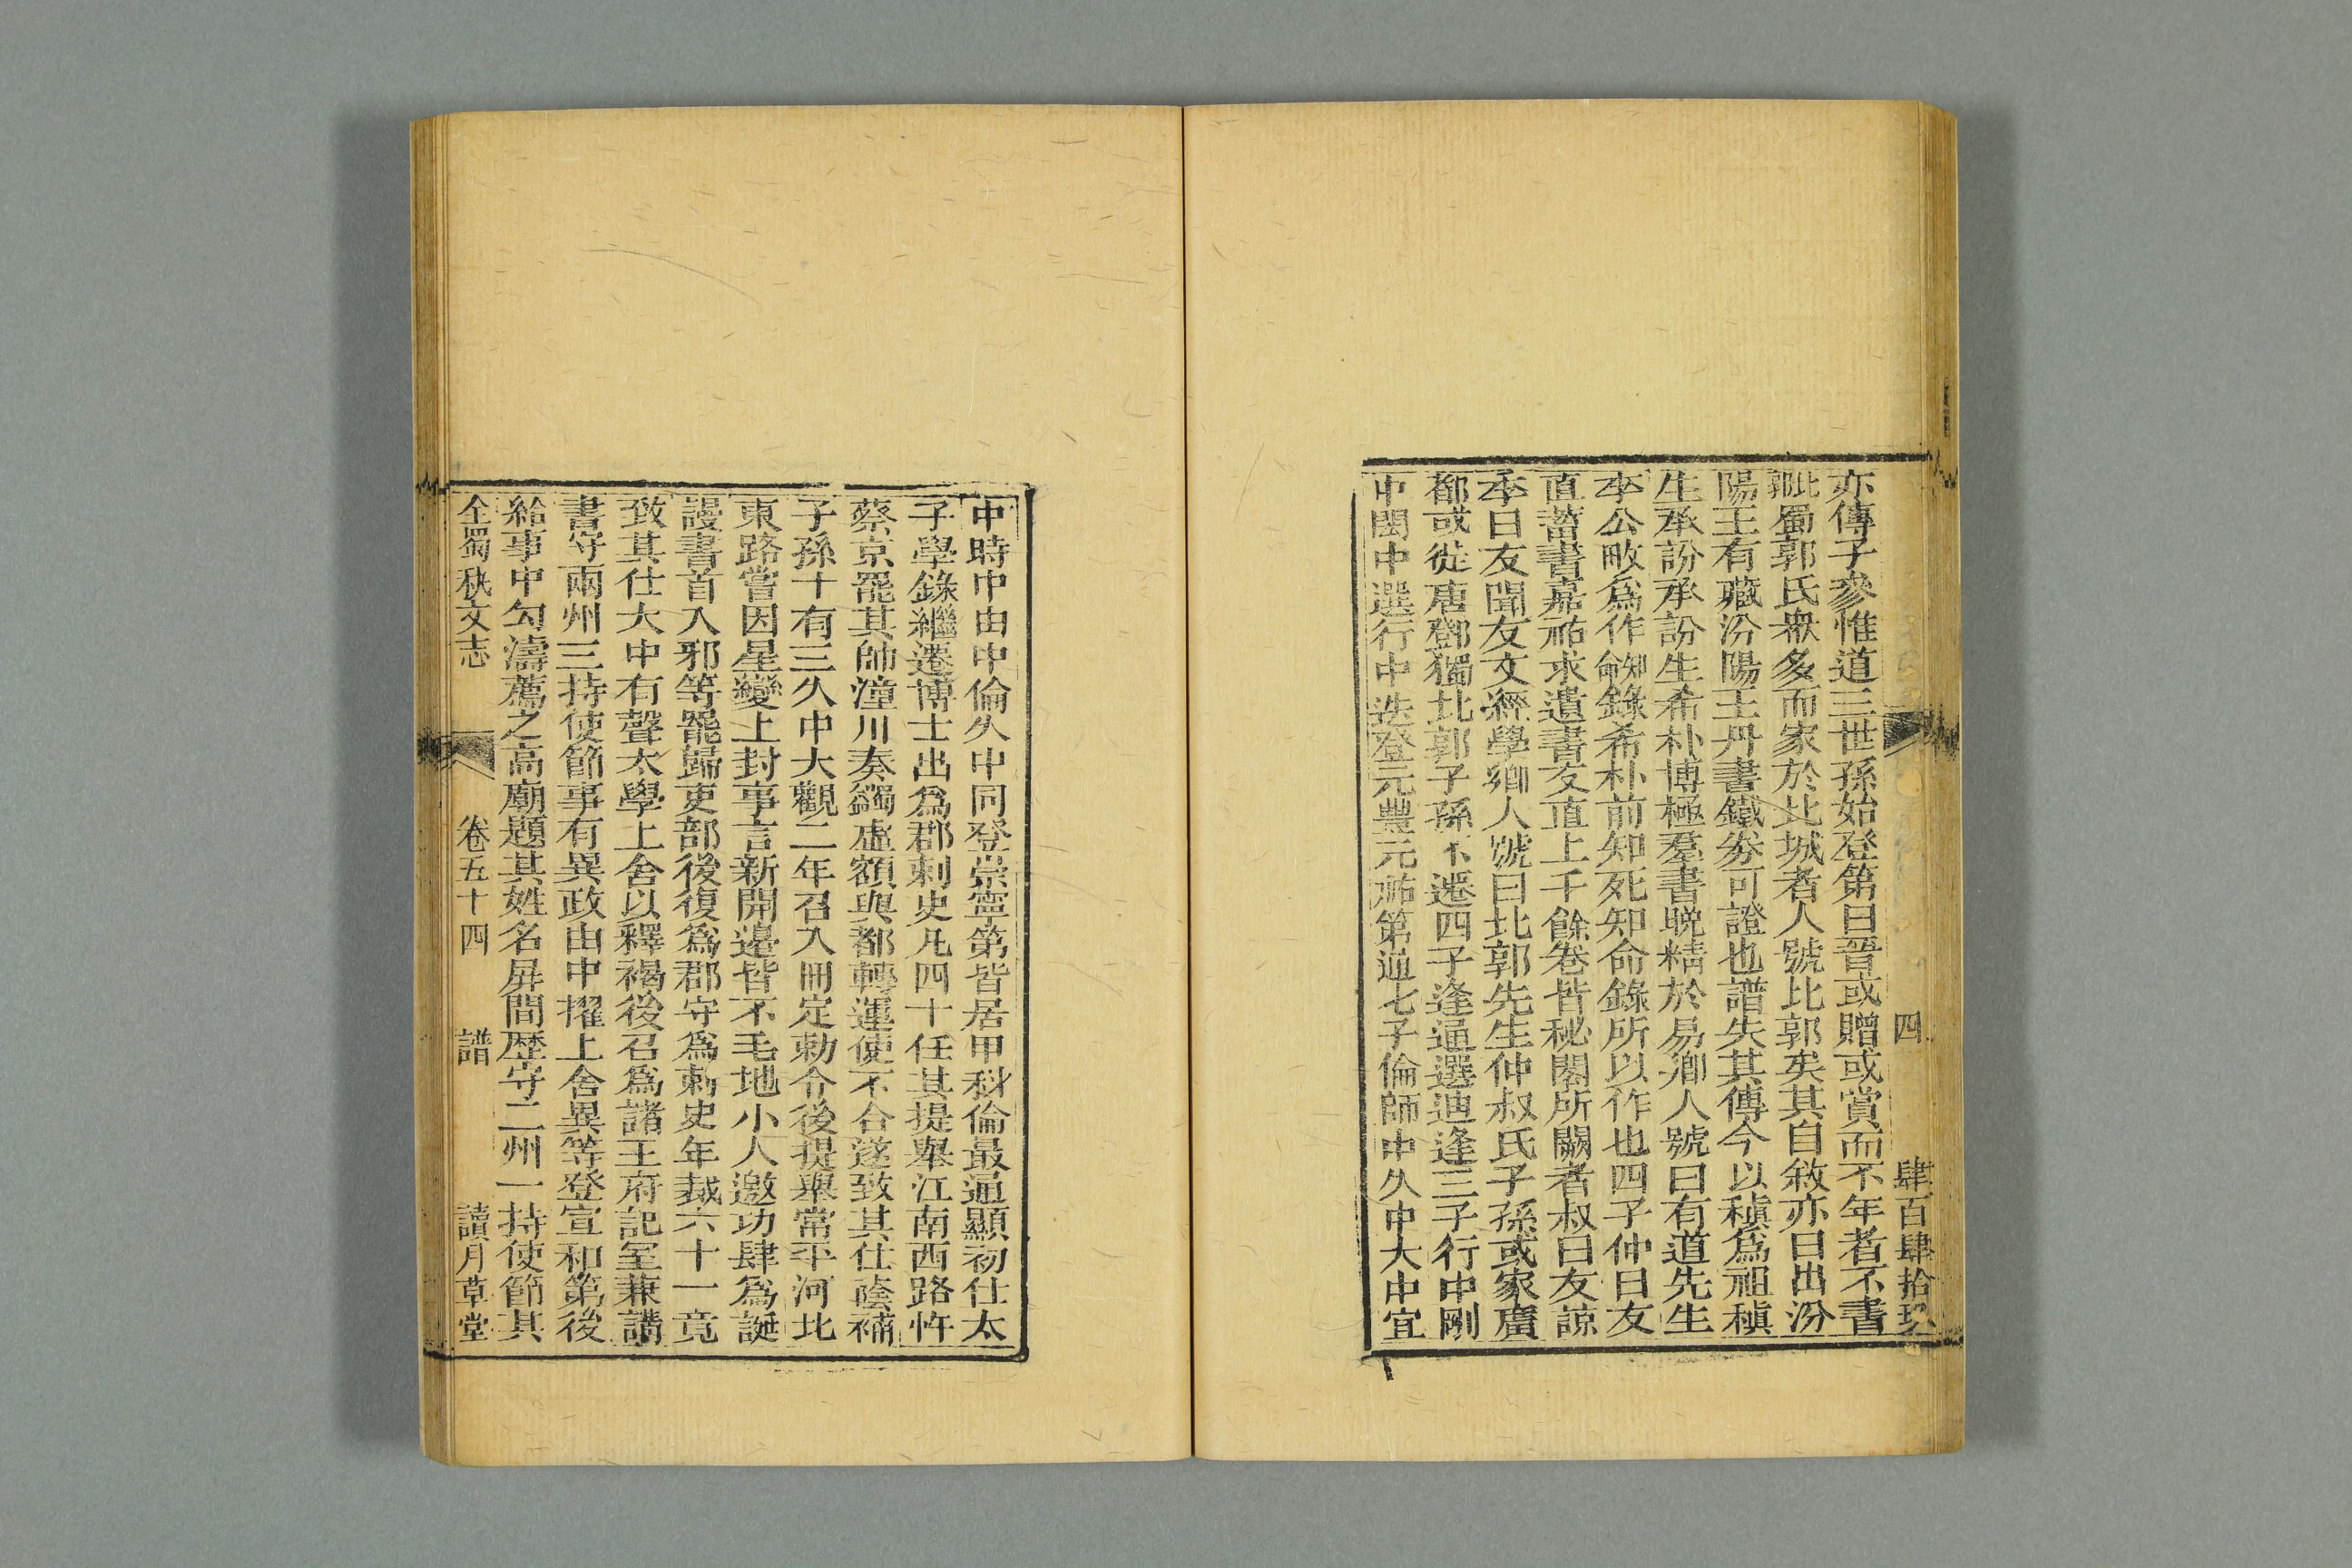 四　肆百肆拾玖
亦傳子參惟道三世孫始登第曰晉或贈或賞而不年者不書
郭蜀郭氏衆多而家於北城者人號北郭矣其自敘亦曰出汾
陽王有藏汾陽王丹書鐵劵可證也譜失其傳今以稹爲祖稹
生承訜承訜生希朴博極羣書晩精於易鄉人號曰有道先生
李公畋爲作知命錄希朴前知死知命錄所以作也四子仲曰友
直蓄書嘉祐求遺書友直上千餘卷皆秘閣所闕者叔曰友諒
季曰友聞友文經學鄉人號曰北郭先生仲叔氏子孫或家廣
都或徙唐鄧獨北郭子孫不遷四子逢逼選迪逢三子行中剛
中閎中選行中迭登元豐元祐第逼七子倫師中久中大中宜
中時中由中倫久中同登崇寧第皆居甲科倫最通顯初仕太
子學錄繼遷博士出爲郡刺史凡四十任其提舉江南西路忤
蔡京罷其帥潼川奏蠲虛額與都轉運使不合遂致其仕蔭補
子孫十有三久中大觀二年召入冊定勅令後提舉常平河北
東路嘗因星變上封事言新開邊皆不毛地小人邀功肆爲誕
謾書首入邪等罷歸吏部後復爲郡守爲刺史年裁六十一竟
致其仕大中有聲太學上舍以釋褐後召爲諸王府記室兼講
書守兩州三持使節事有異政由中擢上舍異等登宣和第後
給事中勾濤薦之高廟題其姓名屏間歷守二州一持使節其
全蜀秇文志　卷五十四　譜　讀月草堂